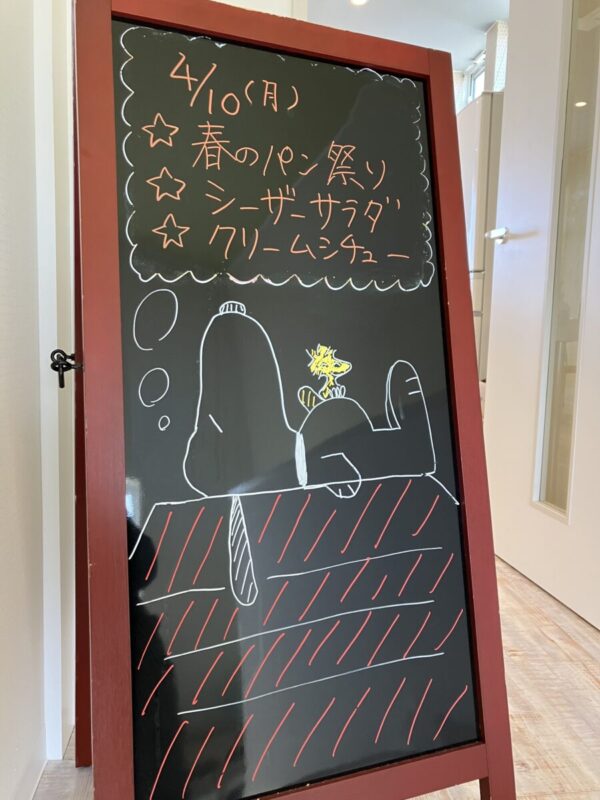 4/10(月)
☆ 春のパン祭り
☆ シーザーサラダ
☆ クリームシチュー